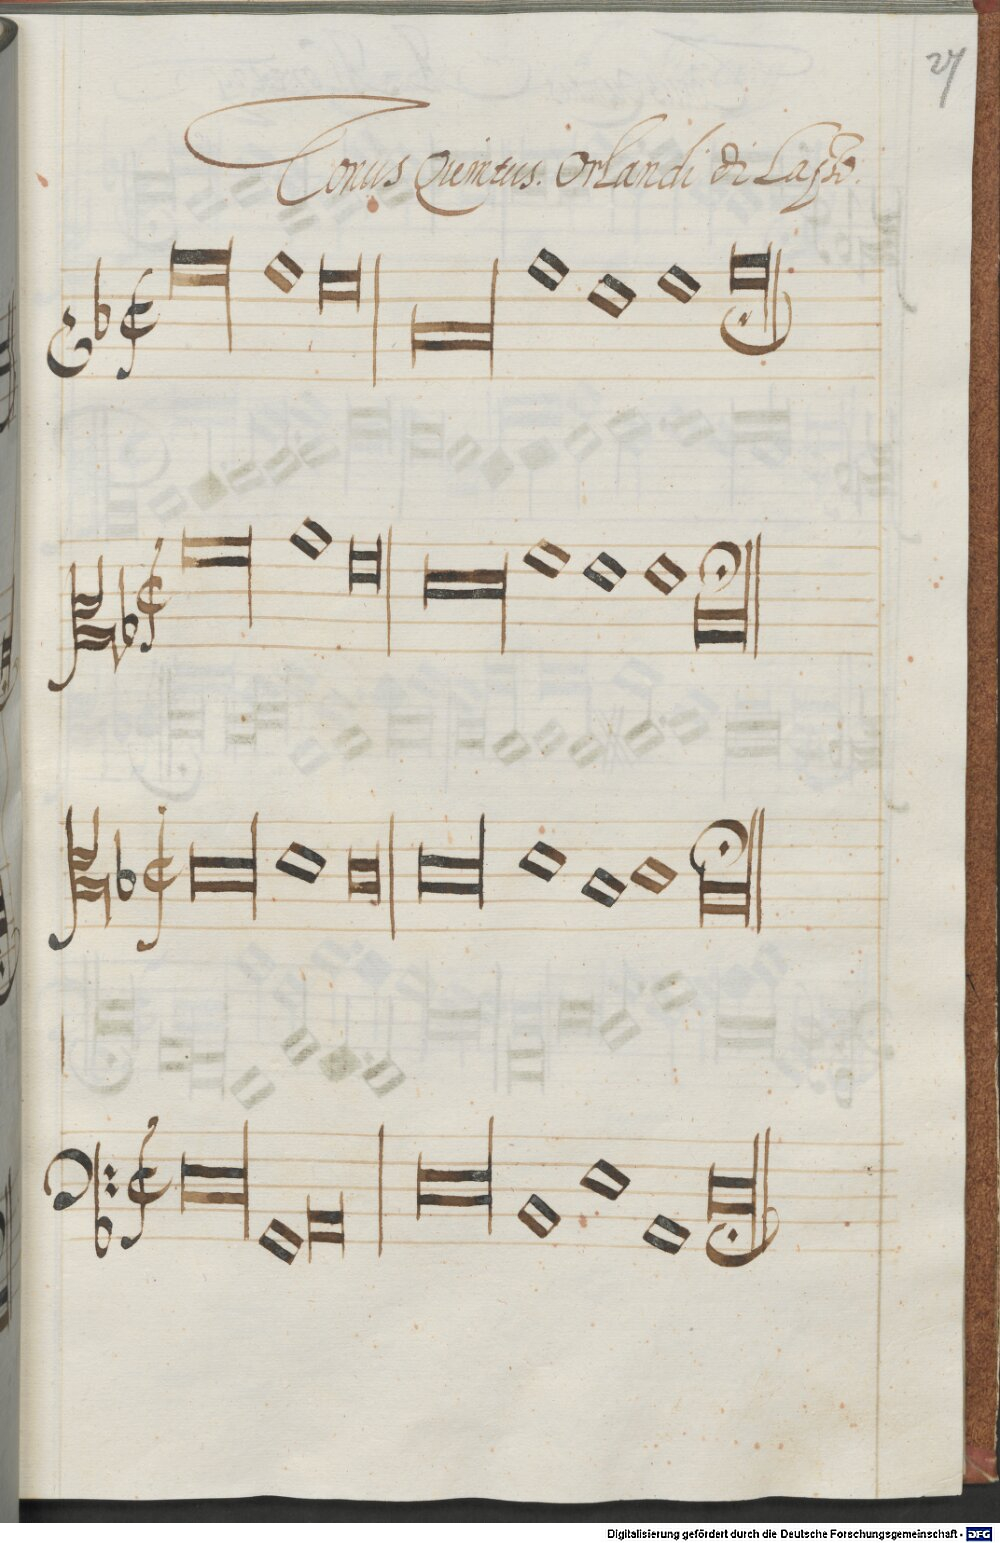 27
Tonus Quintus. Orlandi di Lasso.
Digitalisierung gefördert durch die Deutsche Forschungsgemeinschaft - DFG